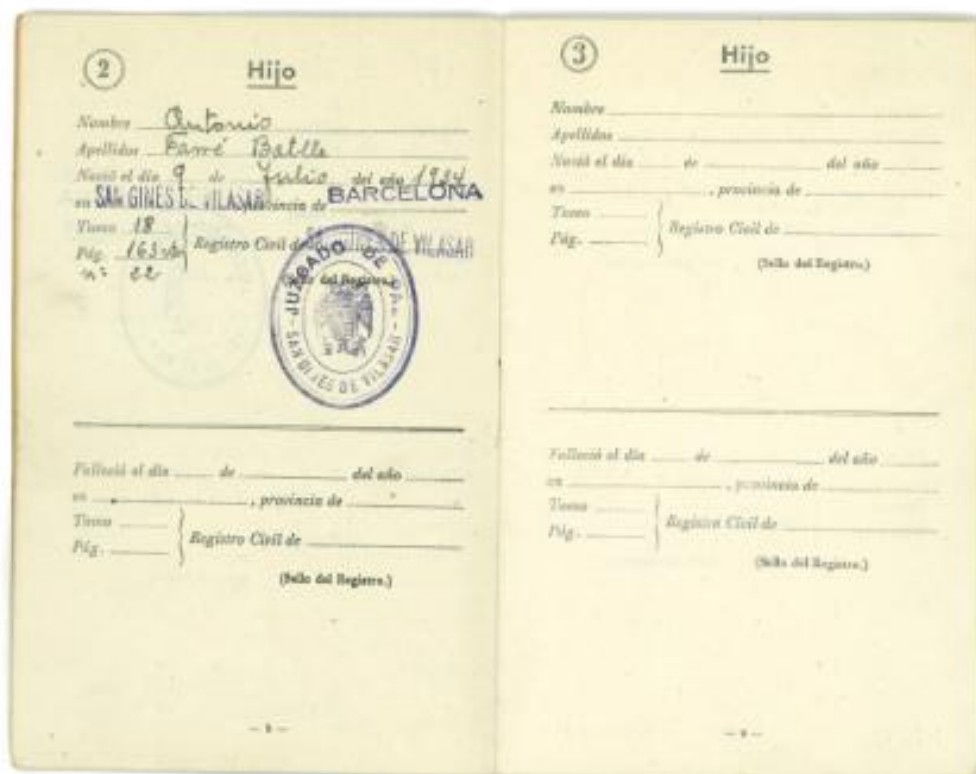 2
Hijo
Nombre Antonio
Apellidos Farré Batlle
Nació el día 9 de Julio del año
en SAN GINES DE VILASAR provincia de BARCELONA
Tomo 18
Pág. 163
nº 22
Registro Civil de SAN GINES DE VILASAR
(Sello del Registro.)
JUZGADO DE PAZ - SAN GINES DE VILASAR -
Falleció el día de del año
en , provincia de
Tomo
Pág.
Registro Civil de
(Sello del Registro.)
3
Hijo
Nombre
Apellidos
Nació el día de del año
en , provincia de
Tomo
Pág.
Registro Civil de
(Sello del Registro.)
Falleció el día de del año
en , provincia de
Tomo
Pág.
Registro Civil de
(Sello del Registro.)